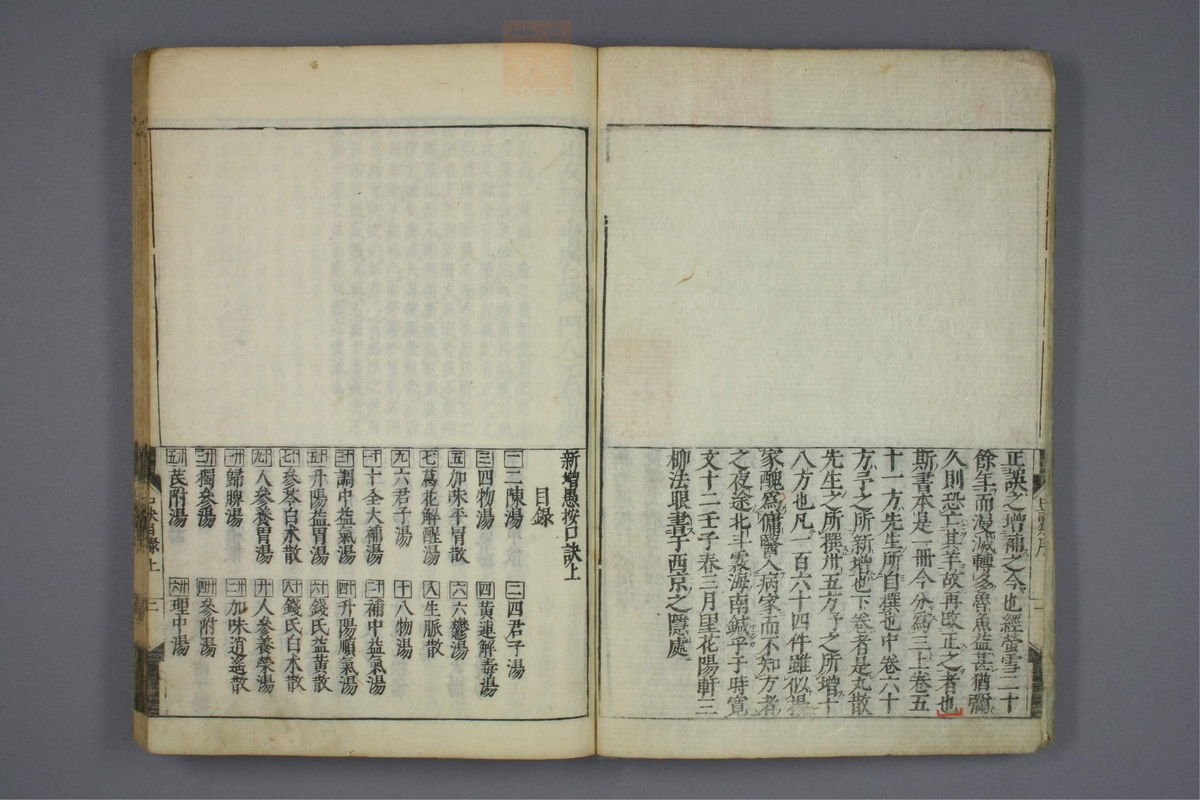 正誤之増補之今也經螢雪二十
餘年而漫滅轉多魯魚益甚猶彌
久則恐亡其羊故再改正之者也
斯書本是一冊今分爲三上卷五
十一方先生所自撰也中卷六十
方予之所新增也下卷者是丸散
先生之所撰卅五方予之所增十
八方也凡一百六十四件雖似揚
家醜爲傭醫人病家而不知方者
之夜途北斗霧海南鍼乎于時寛
文十二壬子春三月里花陽軒三
柳法眼書于西京之隱處
新增愚按口訣上
目錄
一 二陳湯
二 四君子湯
三 四物湯
四 黃連解毒湯
五 加味平胃散
六 六鬱湯
七 萬花解酲湯
八 生脈散
九 六君子湯
十 八物湯
十一 十全大補湯
十二 補中益氣湯
十三 調中益氣湯
十四 升陽順氣湯
十五 升陽益胃湯
十六 錢氏益黃散
十七 參苓白朮散
十八 錢氏白朮散
十九 人參養胃湯
二十 人參養榮湯
廿一 歸脾湯
廿二 加味逍遙散
廿三 獨參湯
廿四 參附湯
廿五 芪附湯
廿六 理中湯
口訣目錄上